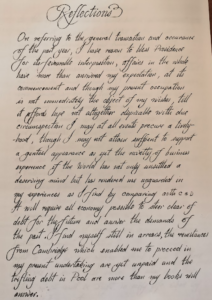 Reflections
On referring to the general transaction and occurrence
of the past year, I have reason to bless Providence
for its favourable interposition, affairs on the whole
have more than answered my expectation, at its
commencement and though my present occupation
is not immediately the object of my wishes, still
it affords hope not altogether disprovable with our
circumspection I may at all events procure a
hood, though I may not attain sufficient to support
a genteel appearance as yet the variety of business
experience of the World has not only instilled a
deserving mind but has rendered me
my experience as I find by comparing with
It will require all economy possible to steer clear of
debt for the future and answer the demands of
the past. I find myself still in arrears, the remittances
from Cambridge which enabled me to proceed in
my present undertaking are yet unpaid and the
trifling debt in Pool are more than my books will
answer.